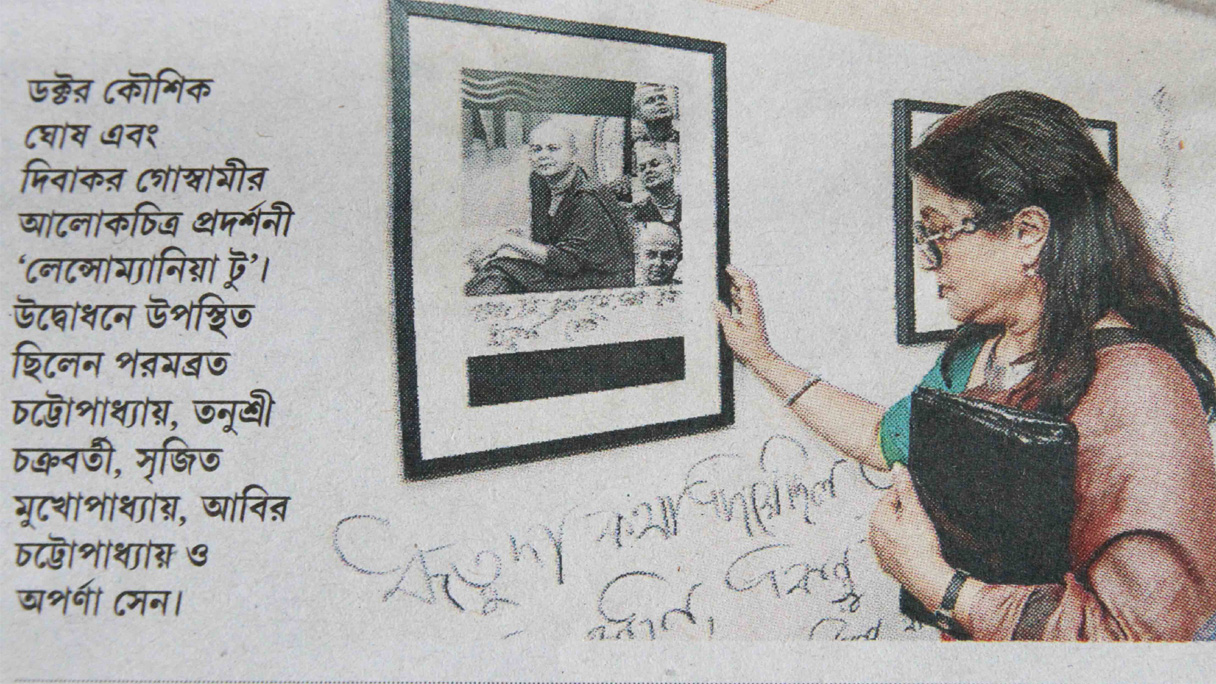 ডক্টর কৌশিক
ঘোষ এবং
দিবাকর গোস্বামীর
আলোকচিত্র প্রদর্শনী
‘লেন্সোম্যানিয়া টু’।
উদ্বোধনে উপস্থিত
ছিলেন পরমব্রত
চট্টোপাধ্যায়, তনুশ্রী
চক্রবর্তী, সৃজিত
মুখোপাধ্যায়, আবির
চট্টোপাধ্যায় ও
অপর্ণা সেন।
ঋতুদা কথা